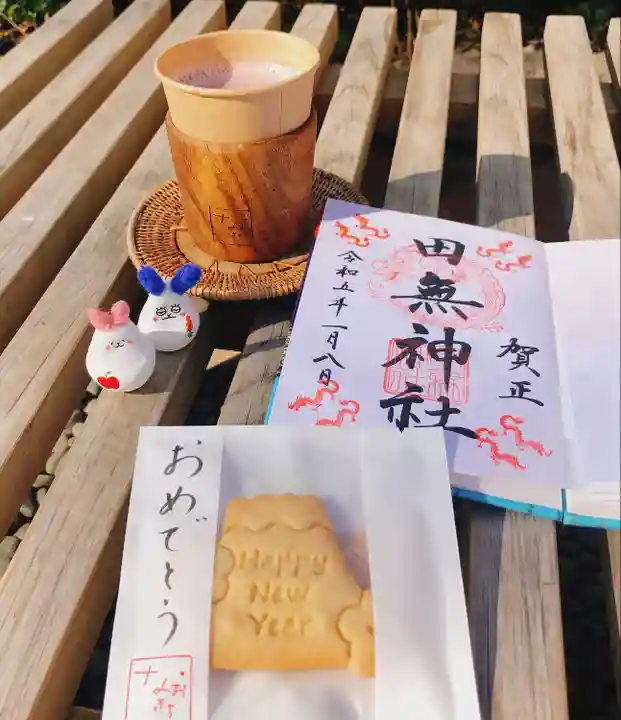 賀正
田無神社
令和五年一月八日
おめでとう
Happy
New
Year